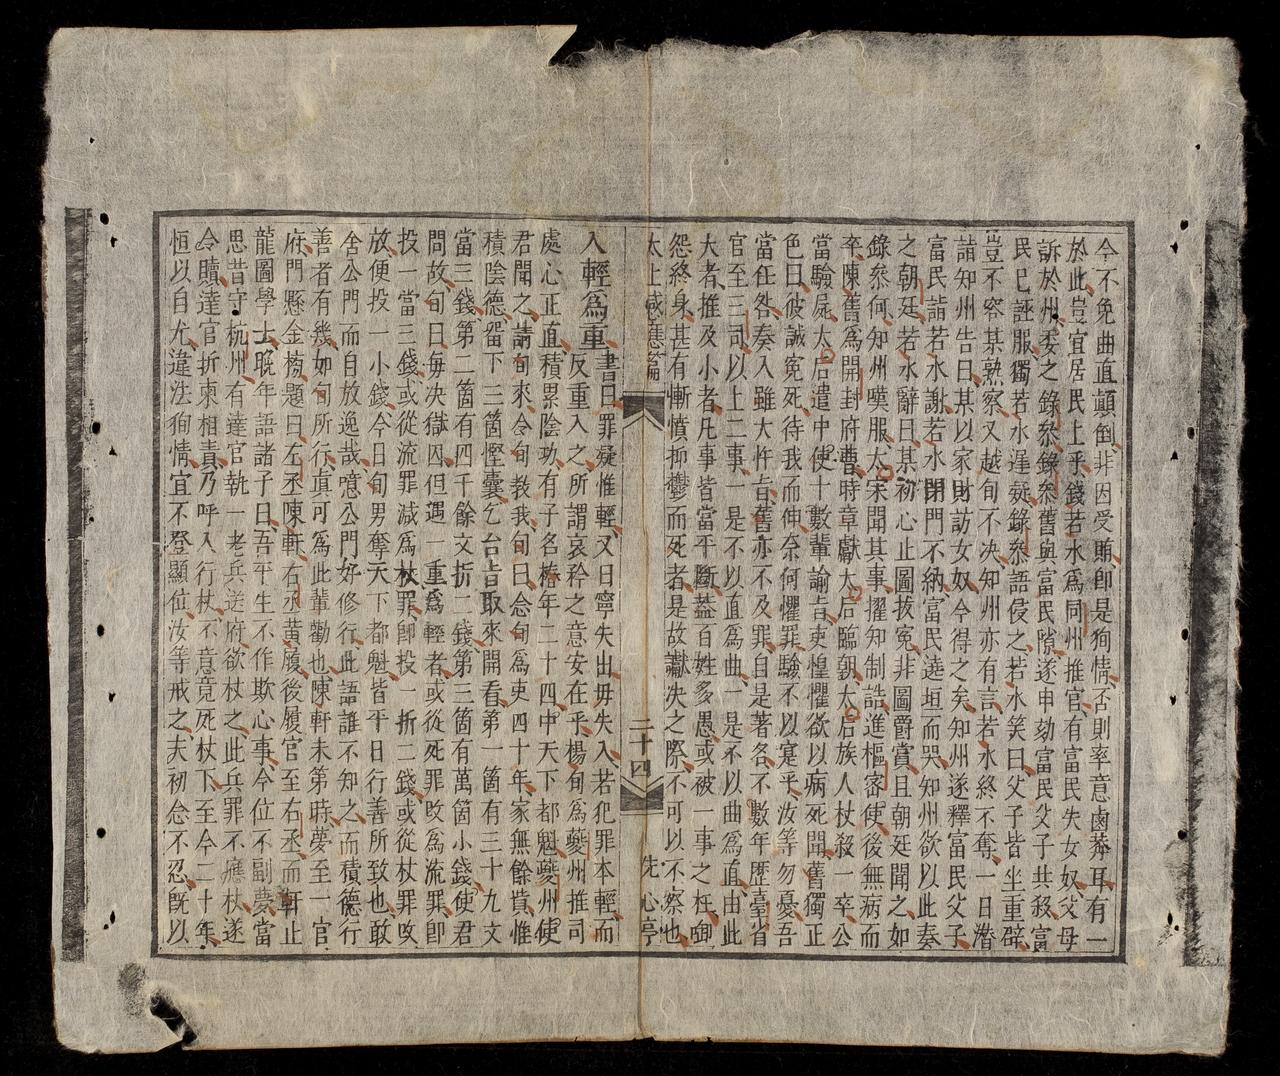 今不免曲直顛倒非因受賄即是狥情否則率意鹵莽耳有一
於此豈宜居民上乎錢若水爲同州推官有富民失女奴父母
訴於州委之錄叅錄叅舊與富民隙遂申劾富民父子共殺富
民已誣服獨若水遲疑錄叅語侵之若水笑曰父子皆坐重辟
豈不容某熟察又越旬不决知州亦有言若水終不奪一日潛
詣知州告曰某以家財訪女奴今得之矣知州遂釋富民父子
富民詣若水謝若水閉門不納富民遶垣而哭知州欲以此奏
之朝廷若水辭曰某初心止圖拔寃非圖爵賞且朝廷聞之如
錄叅何知州嘆服太宋聞其事擢知制誥進樞密使後無病而
卒陳舊爲開封府曹時章獻太后臨朝太后族人杖殺一卒公
當驗屍太后遣中使十數輩諭吉吏惶懼欲以病死聞舊獨正
色曰彼誠寃死待我而伸奈何懼罪驗不以寔乎汝等勿憂吾
當任咎奏入雖大忤旨舊亦不及罪自是著各不數年歷臺省
官至三司以上二事一是不以直爲曲一是不以曲爲直由此
大者推及小者凡事皆當平斷葢百姓多愚或被一事之枉啣
怨終身甚有慚憤抑鬱而死者是故讞决之際不可以不察也
太上感應篇 二十四 洗心亭
入輕爲重書曰罪疑惟輕又曰寧失出毋失入若犯罪本輕而
反重入之所謂哀矜之意安在乎楊旬爲夔州推司
處心正直積累陰功有子名椿年二十四中天下都魁夔州使
君聞之請旬來令旬教我旬曰念旬爲吏四十年家無餘貲惟
積陰德畱下三箇慳囊乞台旨取來開看第一箇有三十九文
當三錢第二箇有四千餘文折二錢第三箇有萬箇小錢使君
問故旬曰每决獄囚但遇一重爲輕者或從死罪改爲流罪卽
投一當三錢或從流罪減爲杖罪卽投一折二錢或從杖罪改
放便投一小錢今日旬男奪天下都魁皆平日行善所致也敢
舍公門而自放逸哉噫公門好修行此語誰不知之而積德行
善者有幾如旬所行眞可爲此輩勸也陳軒未第時夢至一官
府門懸金榜題曰左丞陳軒右丞黄履後履官至右丞而軒止
龍圖學士晚年語諸子曰吾平生不作欺心事今位不副夢當
思昔守杭州有達官執一老兵送府欲杖之此兵罪不應杖遂
令贖達官折柬相責乃呼入行杖不意竟死杖下至今二十年
恒以自尤違法狥情宜不登顯位汝等戒之夫初念不忍旣以